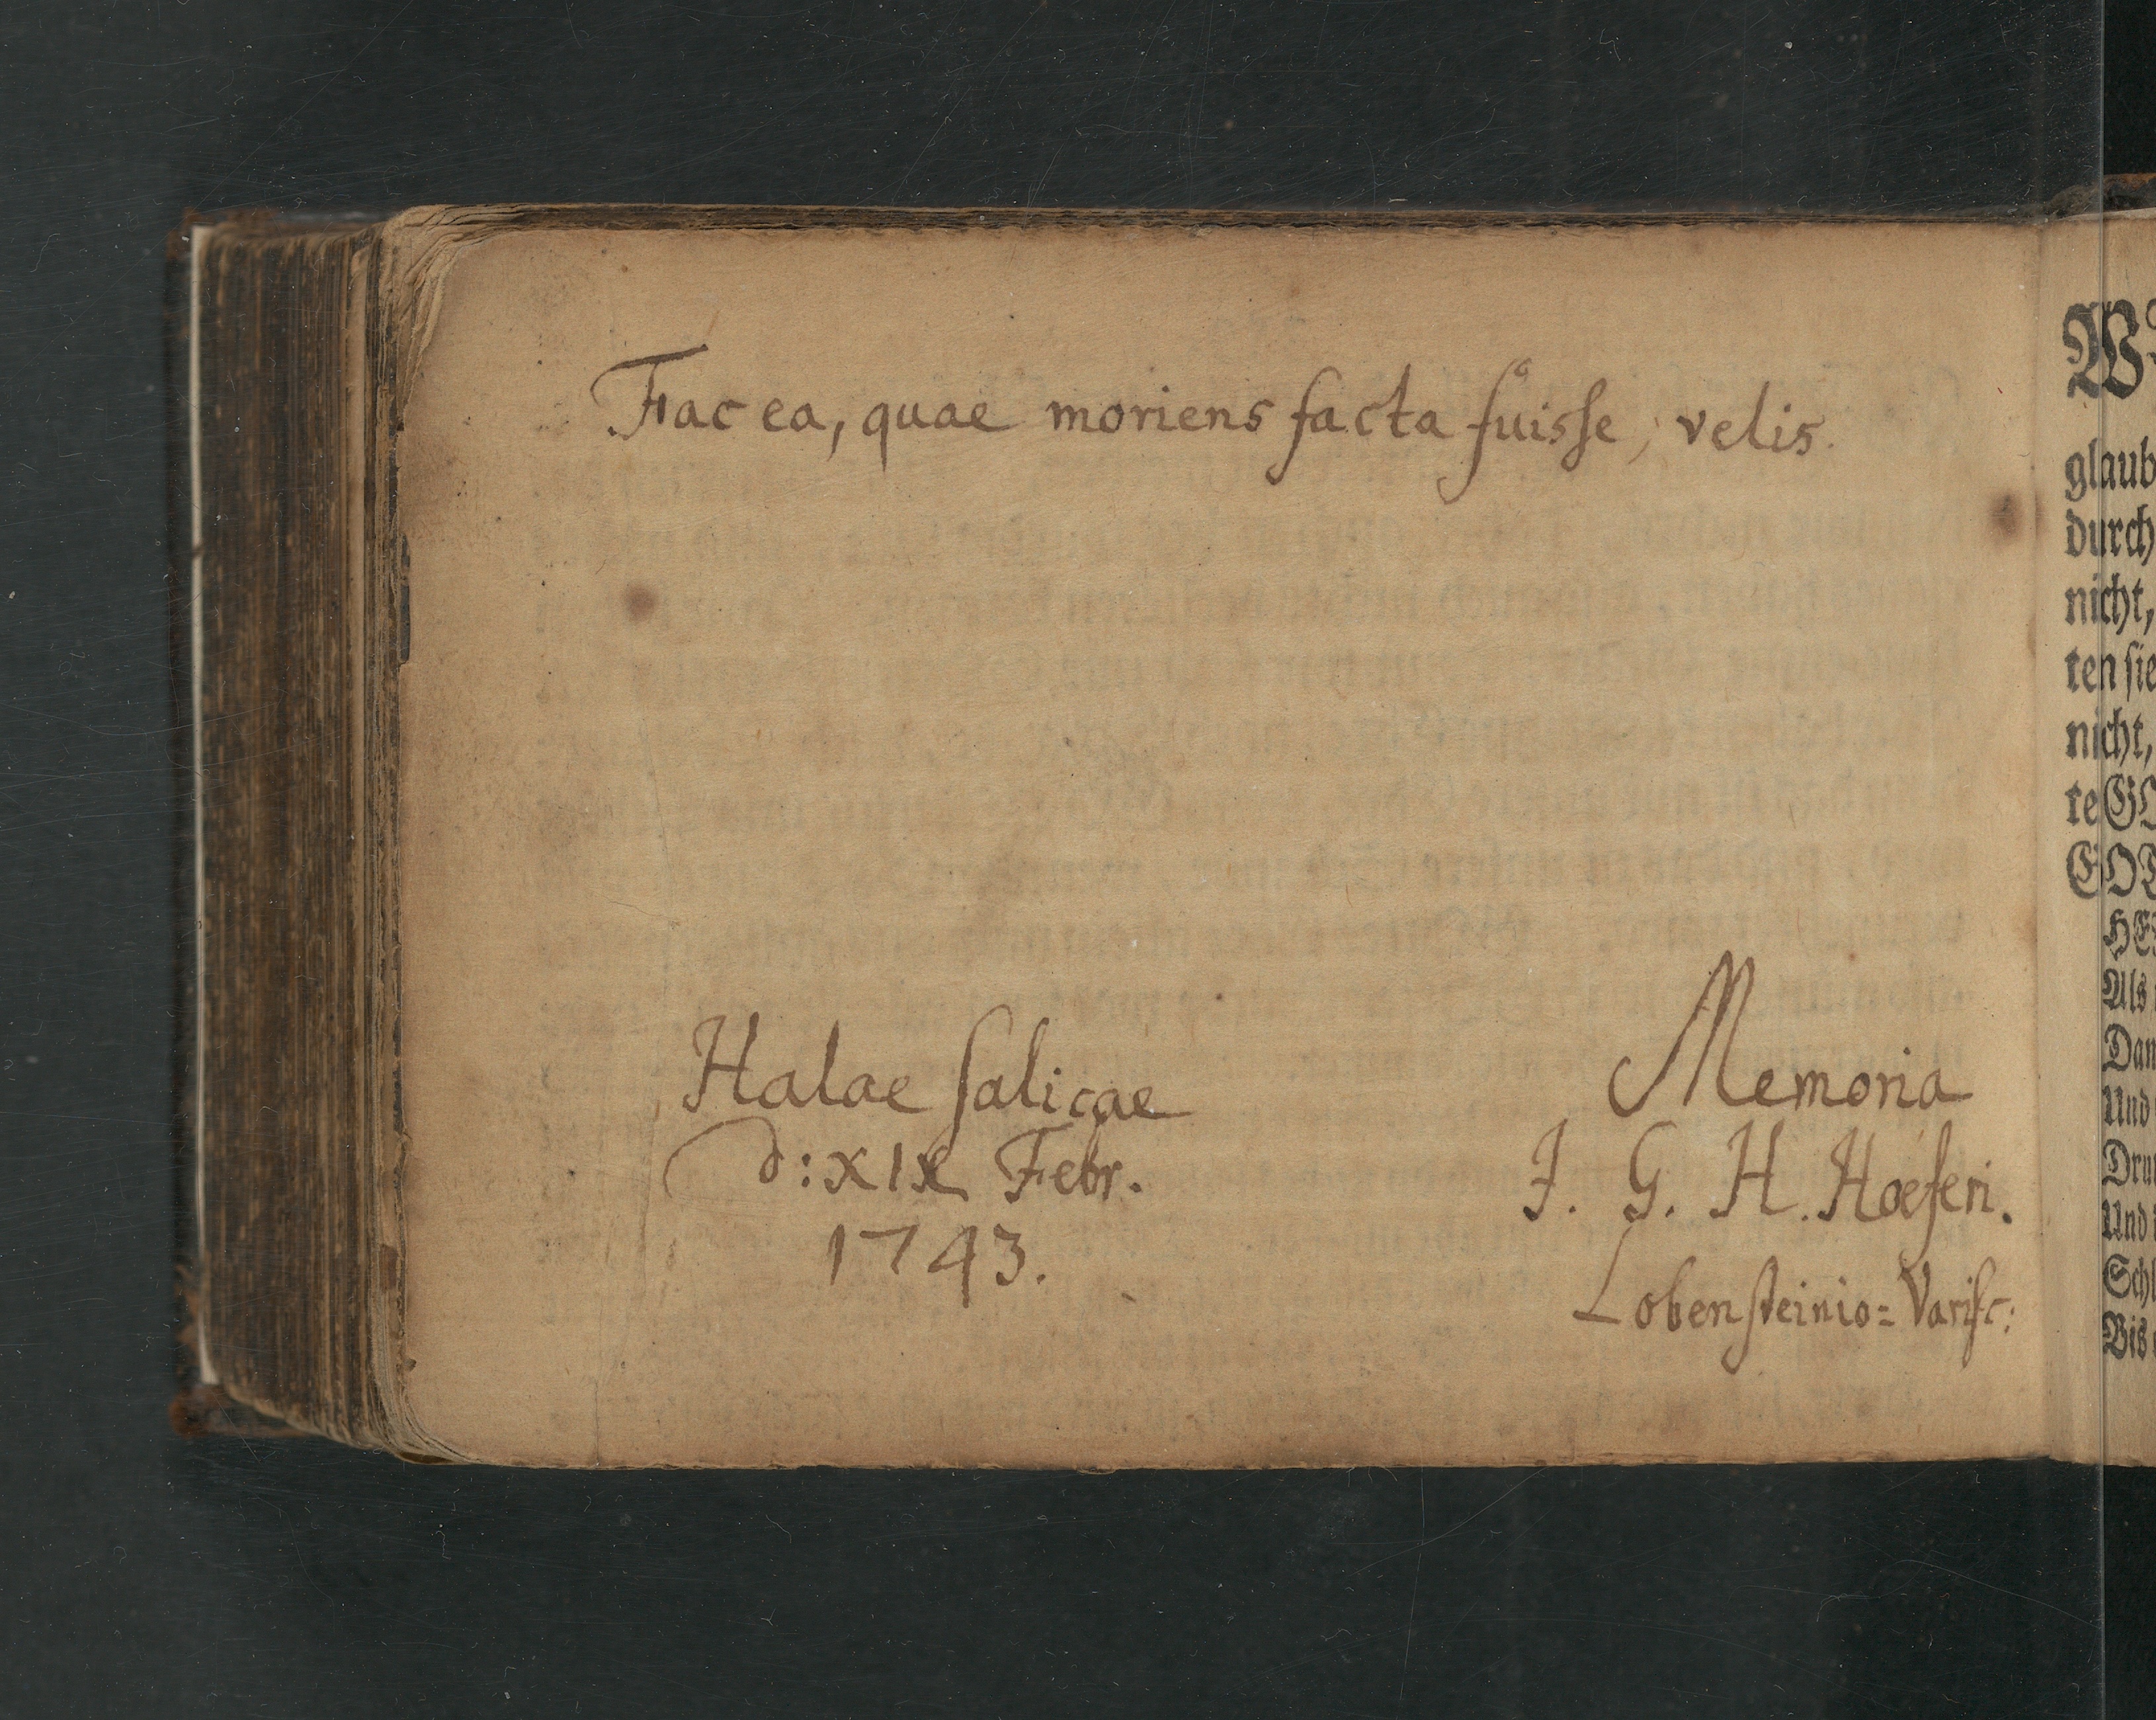 Fac ea, quae moriens facta fuisse, velis.
Halae Salicae
d: XIX Febr.
1743.
Memoria
J. G. H. Hoeferi.
Lobensteinio= Varisc:
W
glaub
durch
nicht,
ten sie
nicht,
te GO
GOT
HE
Als
Dan
Und
Dru
Und
Schl
Bis